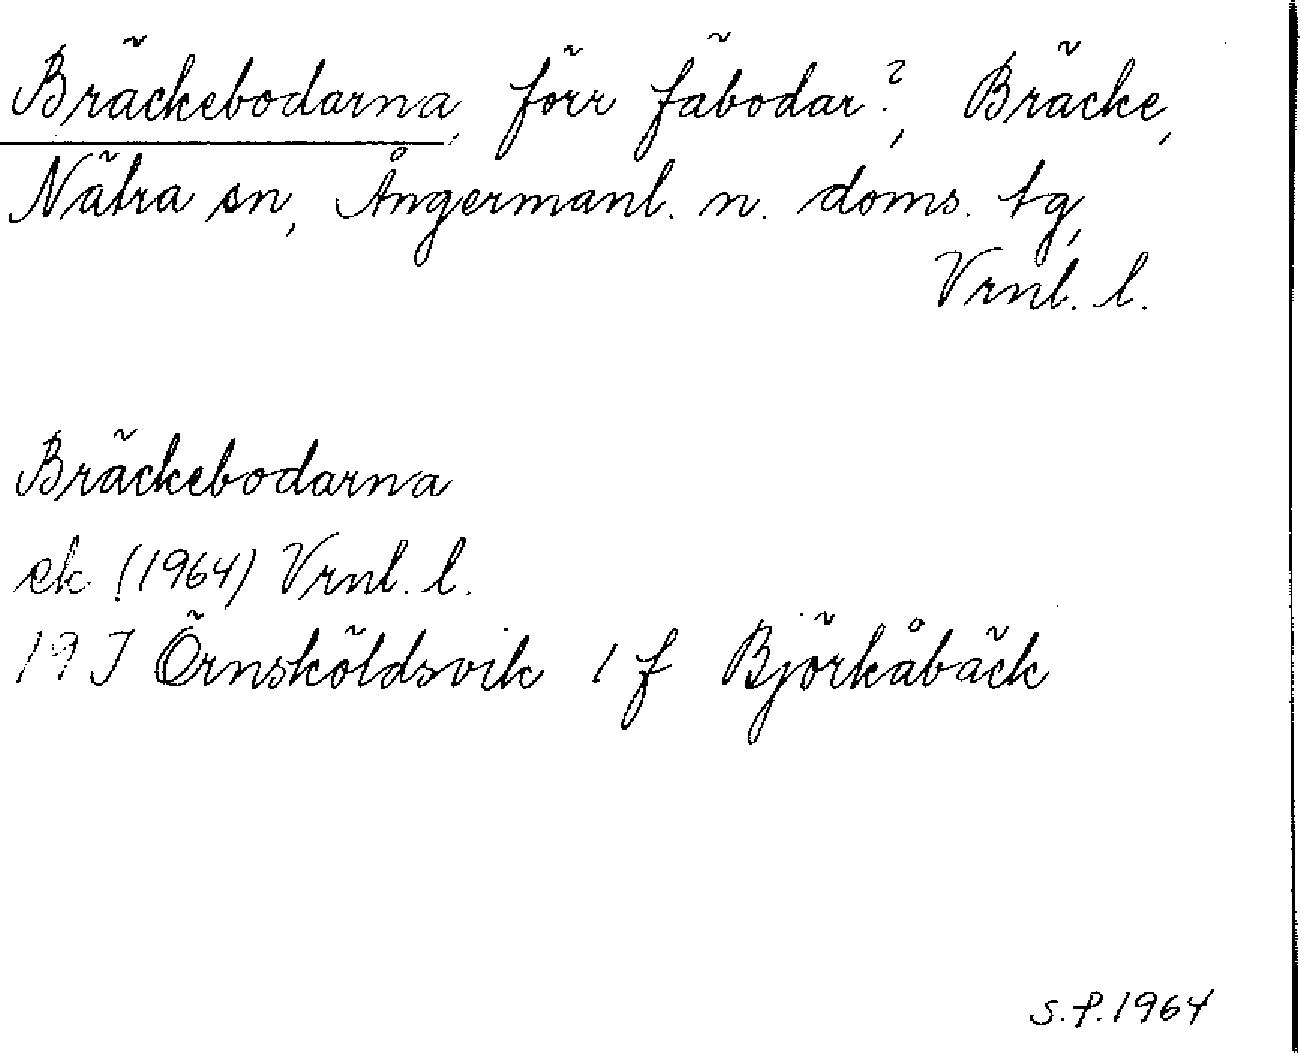 Bräckebodarna, förr fäbodar?, Bräcke,
Nätra sn, Ångermanl. n. doms. tg,
Vrnl. l.
Bräckebodarna
ek (1964) Vrnl. l.
19 J Örnsköldsvik 1 f Björkåbäck
S.P. 1964